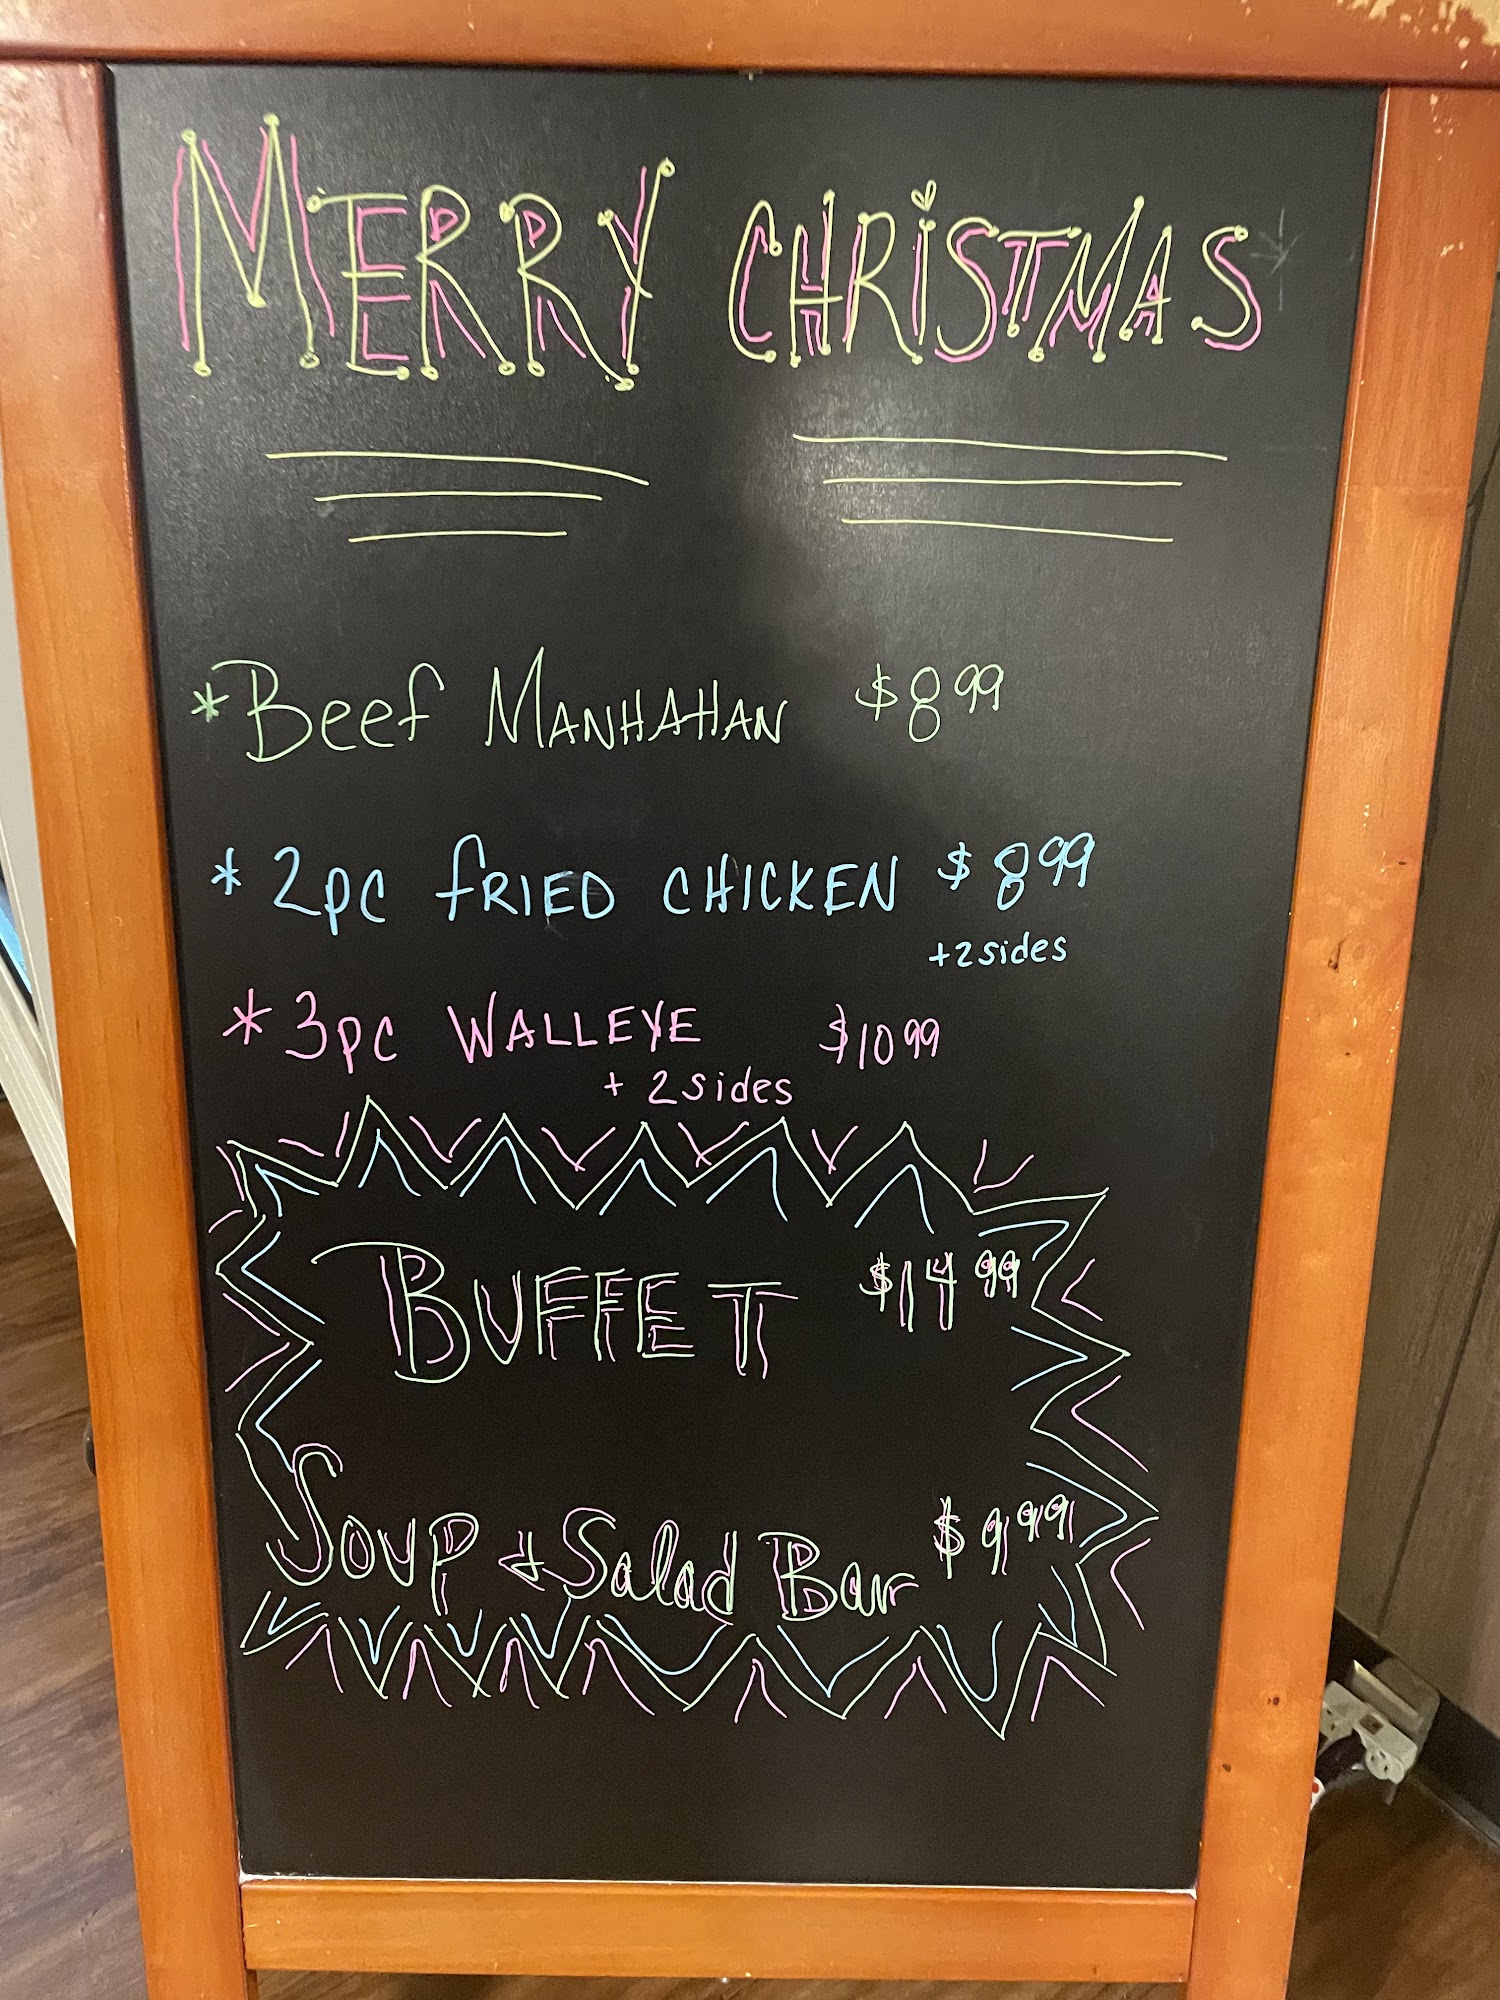 MERRY CHRISTMAS
* Beef MANHAHAN $8.99
* 2pc fRIED CHICKEN $8.99
+2sides
* 3pc WALLEYE $10.99
+ 2sides
BUFFET $14.99
Soup & Salad Bar $9.99